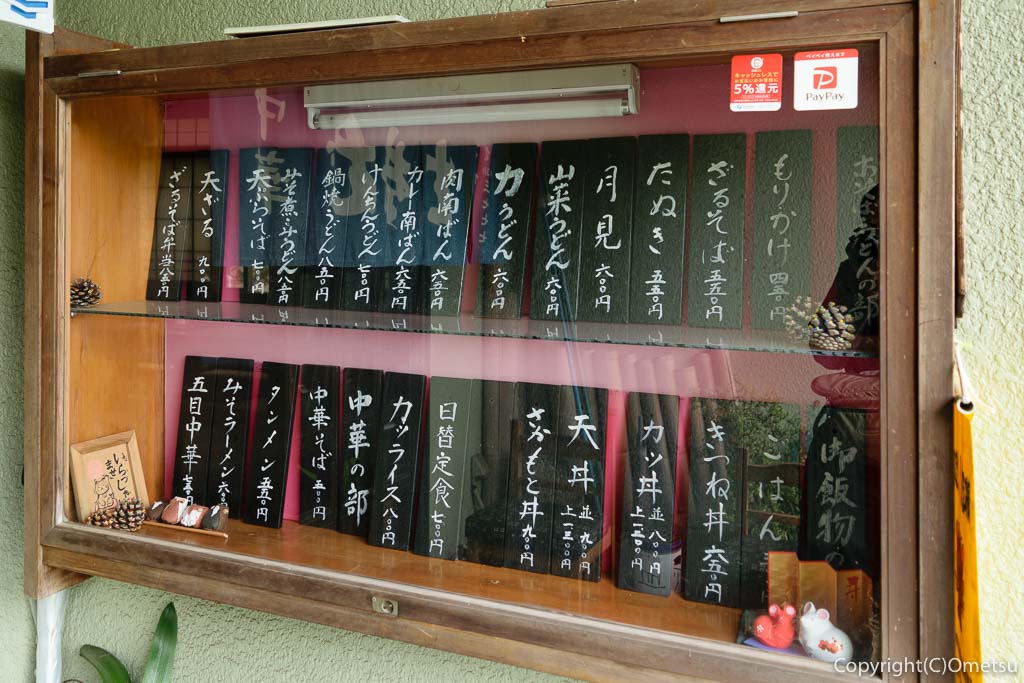 キャッシュレスで
5%還元
PayPay
もりかけ 四五〇円
ざるそば 五五〇円
たぬき 五五〇円
月見 六〇〇円
山菜うどん 六〇〇円
力うどん 六〇〇円
肉南ばん 六五〇円
カレー南ばん 六五〇円
けんちんうどん 七〇〇円
鍋焼うどん 八五〇円
天ぷらそば 七〇〇円
天ざる 九〇〇円
ざるそば弁当 八五〇円
御飯物の
ごはん
きつね丼 六五〇円
カツ丼 並 八〇〇円
上 一二〇〇円
天丼 並 九〇〇円
上 一三〇〇円
さかもと丼 九〇〇円
日替定食 七〇〇円
カツライス 八〇〇円
中華の部
中華そば 五〇〇円
タンメン 五五〇円
みそラーメン 六〇〇円
五目中華
いらっしゃい
ませ
Copyright(C)Ometsu